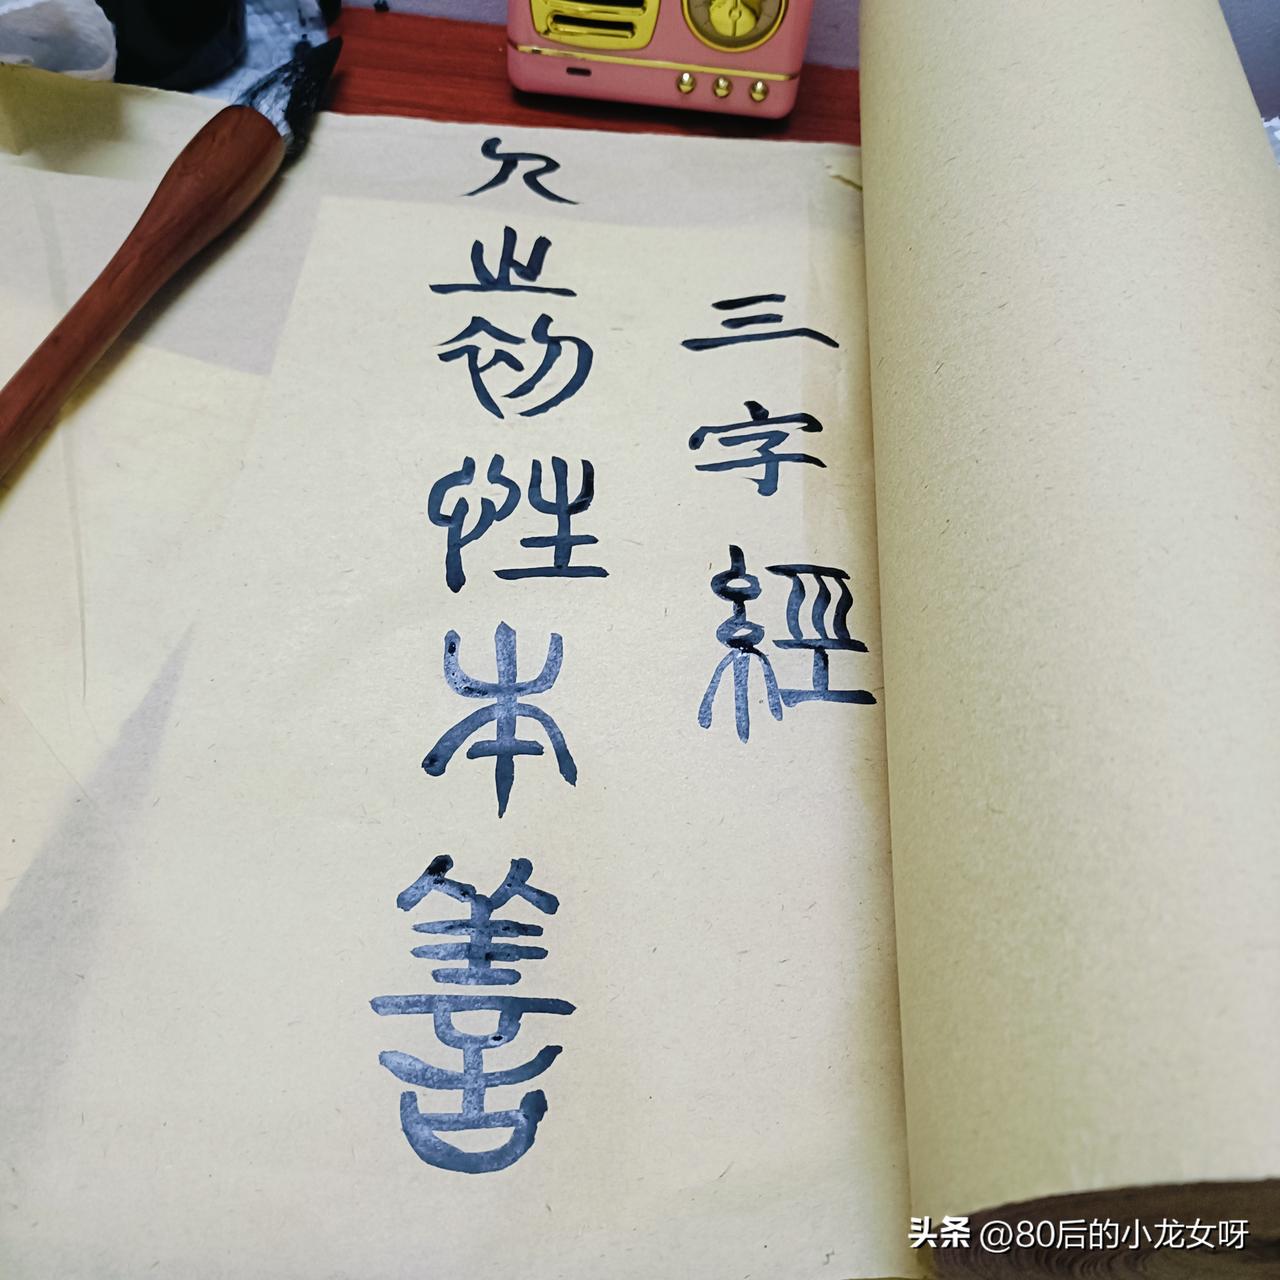 三字經
人之初性本善
头条 @80后的小龙女呀